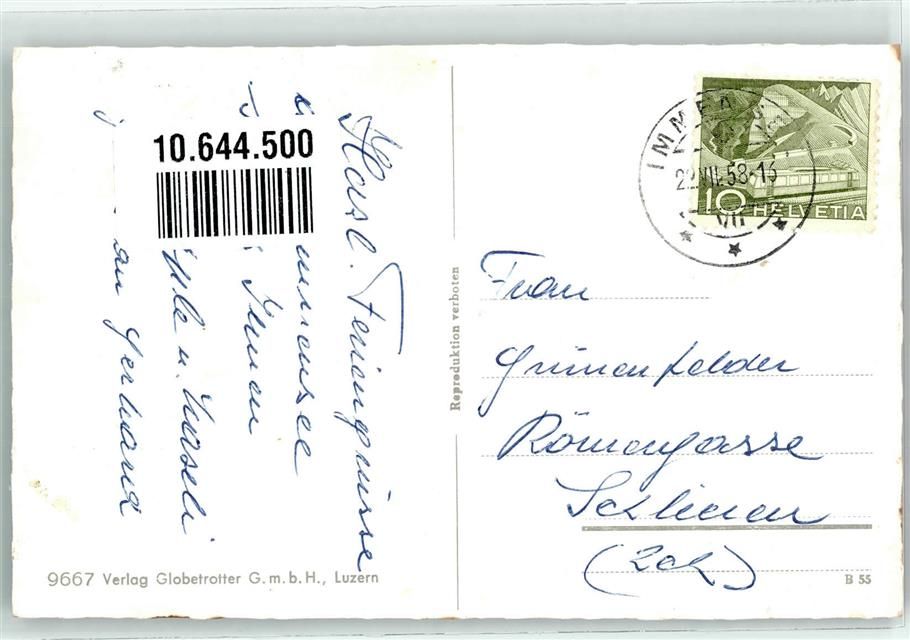 Herzl. Feriengrüsse
Ihnen
an Gerhard
10.644.500
9667 Verlag Globetrotter G.m.b.H., Luzern
Reproduktion verboten
IMMEN
22.VII.58-13
VII
10 HELVETIA
Frau
Grünenfelder
Römergasse
Schlieren
(Zch)
B 55